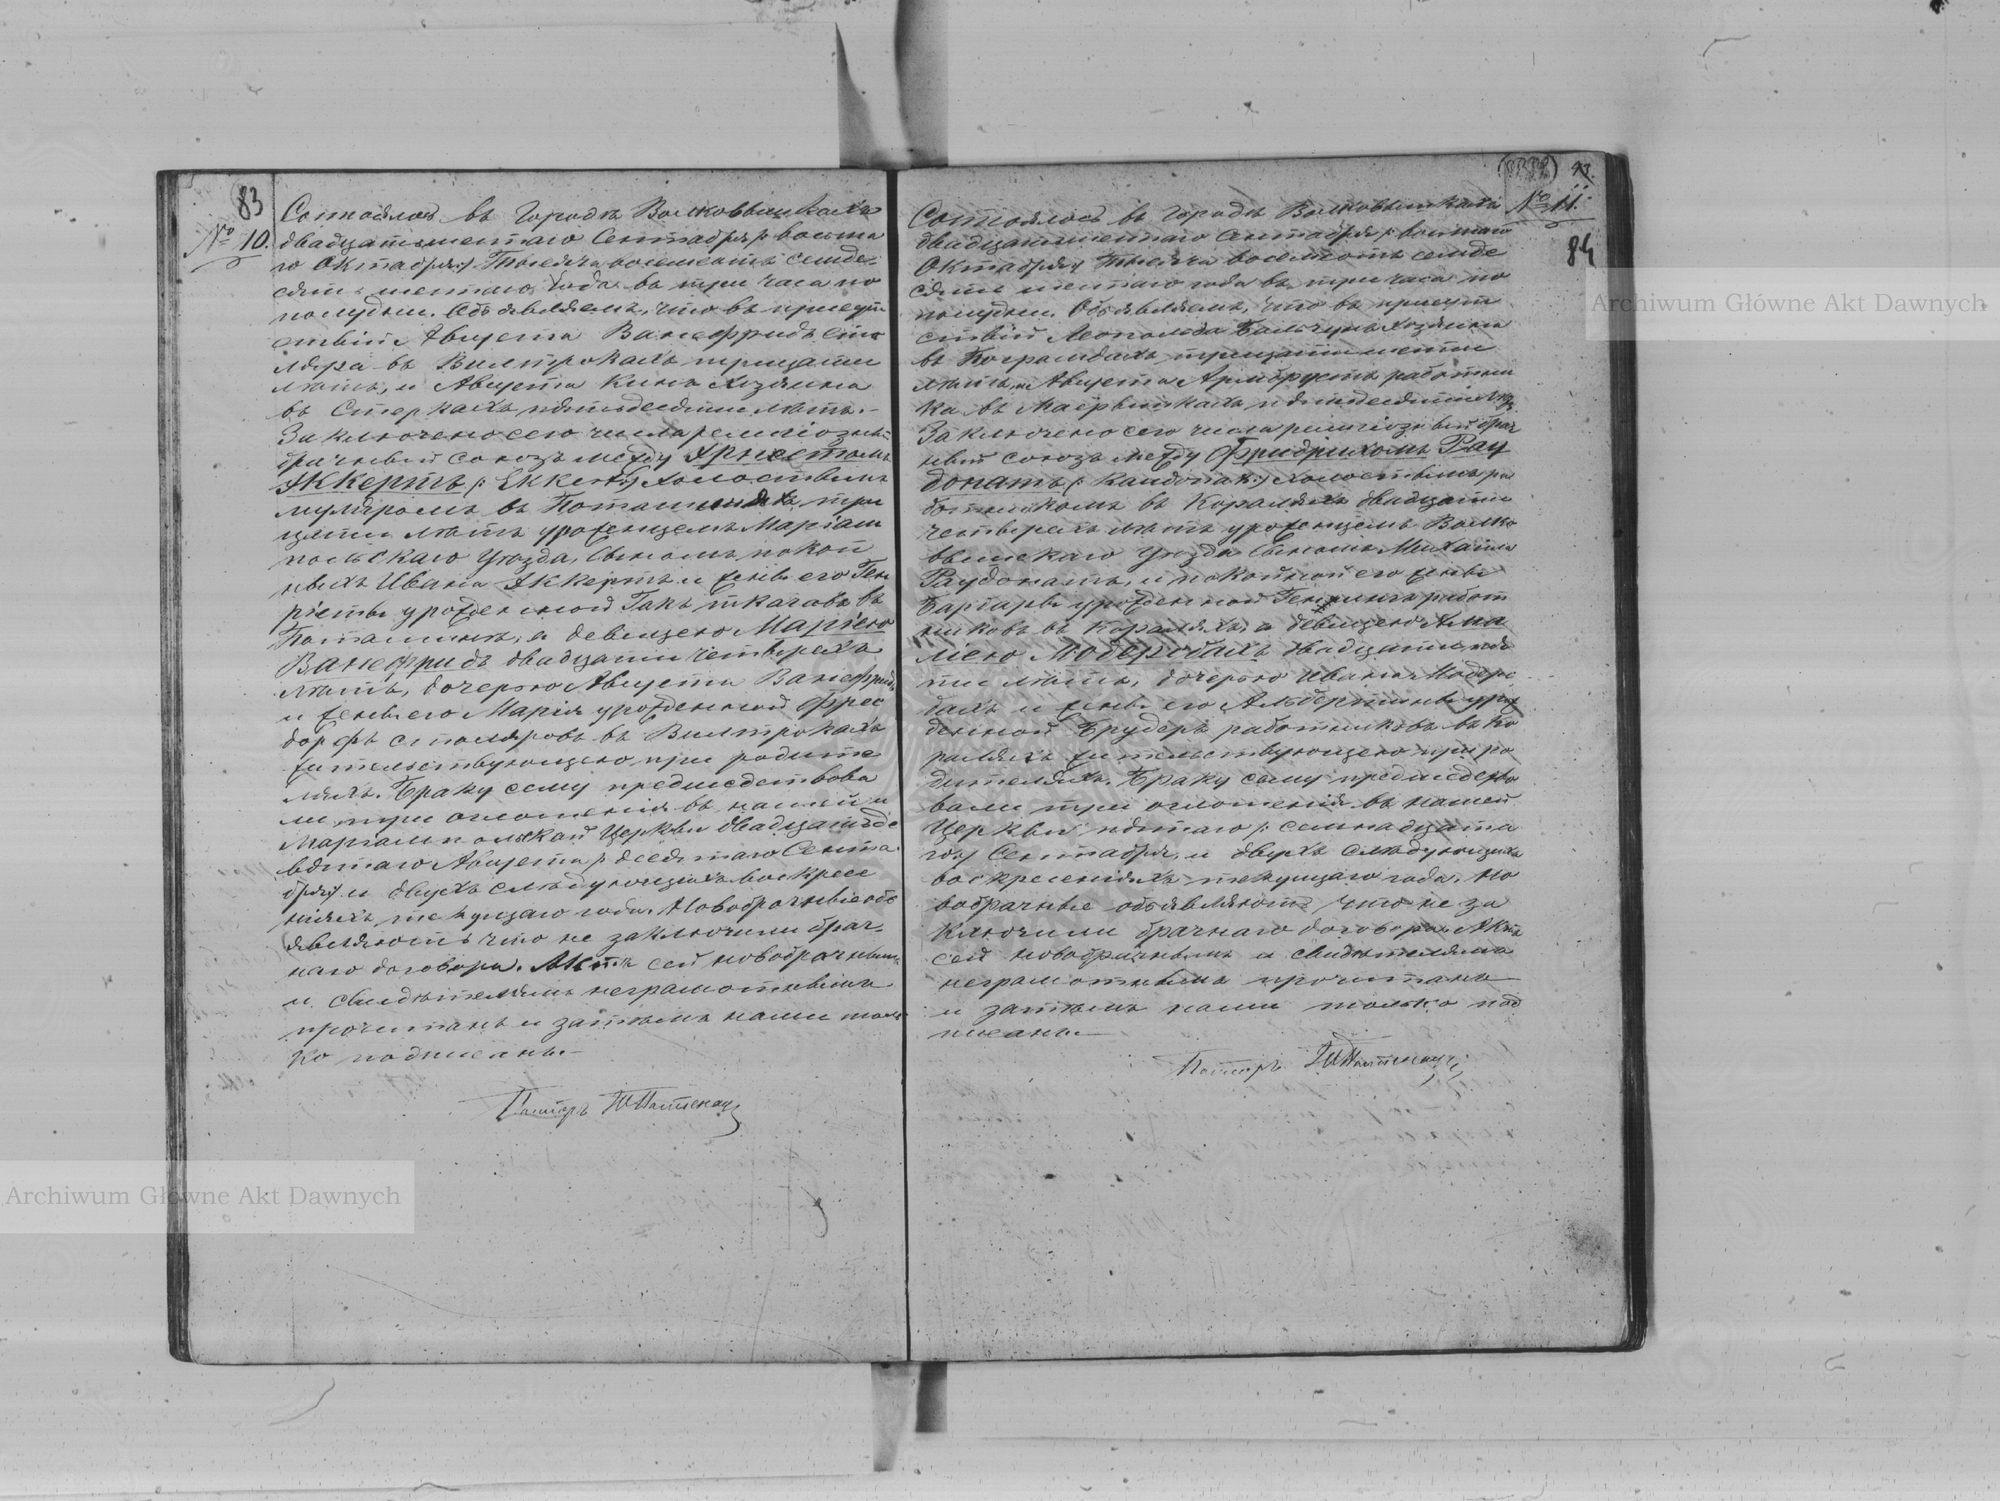 83
№ 10.
Состоялось въ Городѣ Волковышкахъ
двадцатьшестаго Сентября /: восьма
го Октября :/ Тысяча восемьсотъ семде-
сятъ шестаго года въ три часа по
полудни. Объявляемъ, что въ присут
ствіи Августа Ванефридъ сто
ляра въ Вилтрокахъ тридцати
лѣтъ, и Августа Кинъ хозяина
въ Стеркахъ пятьдесяти лѣтъ.-
Заключено сего числа религіозный
брачный союзъ между Эрнстомъ
Эккертъ /: Ekkert :/ холостымъ
муляромъ въ Поташняхъ три
цати лѣтъ уроженцемъ Маріам
польскаго уѣзда, сыномъ покой
ныхъ Ивана Эккертъ и жены его Ген
ріеты урожденной Гакъ ткачовъ въ
и девицею Маріею
Ванефридъ двадцати четырехъ
лѣтъ, дочерою Августа Ванефридъ
и жены его Марія урожденной Фрес
дорфъ столяровъ въ Вилтрокахъ
жительствующею при родите
ляхъ. Браку сему предшедствова
ли три оглошенія въ нашей и
Маріампольской Церкви двадцатьде
вятаго Августа /: десятаго Сентя-
бря :/ и двухъ слѣдующихъ воскресе
ніяхъ текущаго года. Новобрачные объ
являютъ что не заключили брач-
наго договора. Актъ сей новобрачнымъ
и свидѣтелямъ неграмотнымъ
прочитанъ и затѣмъ нами толь
ко подписанъ.-
Пасторъ
43.
№ 11.
84
Состоялось въ Городѣ Волковышкахъ
двадцатьшестаго Сентября /: восьмаго
Октября :/ Тысяча восемьсотъ семде
сятъ шестаго года въ три часа по
полудни. Объявляемъ, что въ присут
ствіи Леопольда хозяина
въ Пограмдахъ тридцати шести
лѣтъ, и Августа Армбрустъ работни
ка въ пятидесяти лѣт.
Заключено сего числа религіозный брач
ный союзъ между Фридрихомъ Рау
донатъ /: Raudonat :/ холостымъ ра
ботникомъ въ Кораляхъ двадцати
четырехъ лѣтъ уроженцемъ Волко
вышскаго уѣзда сыномъ Михаила
Раудонатъ, и покойной его жены
Барбары урожденной работ
никовъ въ Кораляхъ, и девицею Ама
лею Модербахъ двадцати пя
ти лѣтъ, дочерою Ивана Модер
бахъ и жены его Альбертины урож
денной Брудеръ работниковъ въ Ко
раляхъ жительствующею при ро
дителяхъ. Браку сему предшедство
вали три оглошенія въ нашей
Церкви пятаго /: семнадцата
го :/ Сентября, и двухъ слѣдующихъ
воскресеніяхъ текущаго года. Но
вобрачные объявляютъ, что не за
ключили брачнаго договора. Актъ
сей новобрачнымъ и свидѣтелямъ
неграмотнымъ прочитанъ
и затѣмъ нами только под
писанъ.-
Пасторъ
Archiwum Główne Akt Dawnych
Archiwum Główne Akt Dawnych